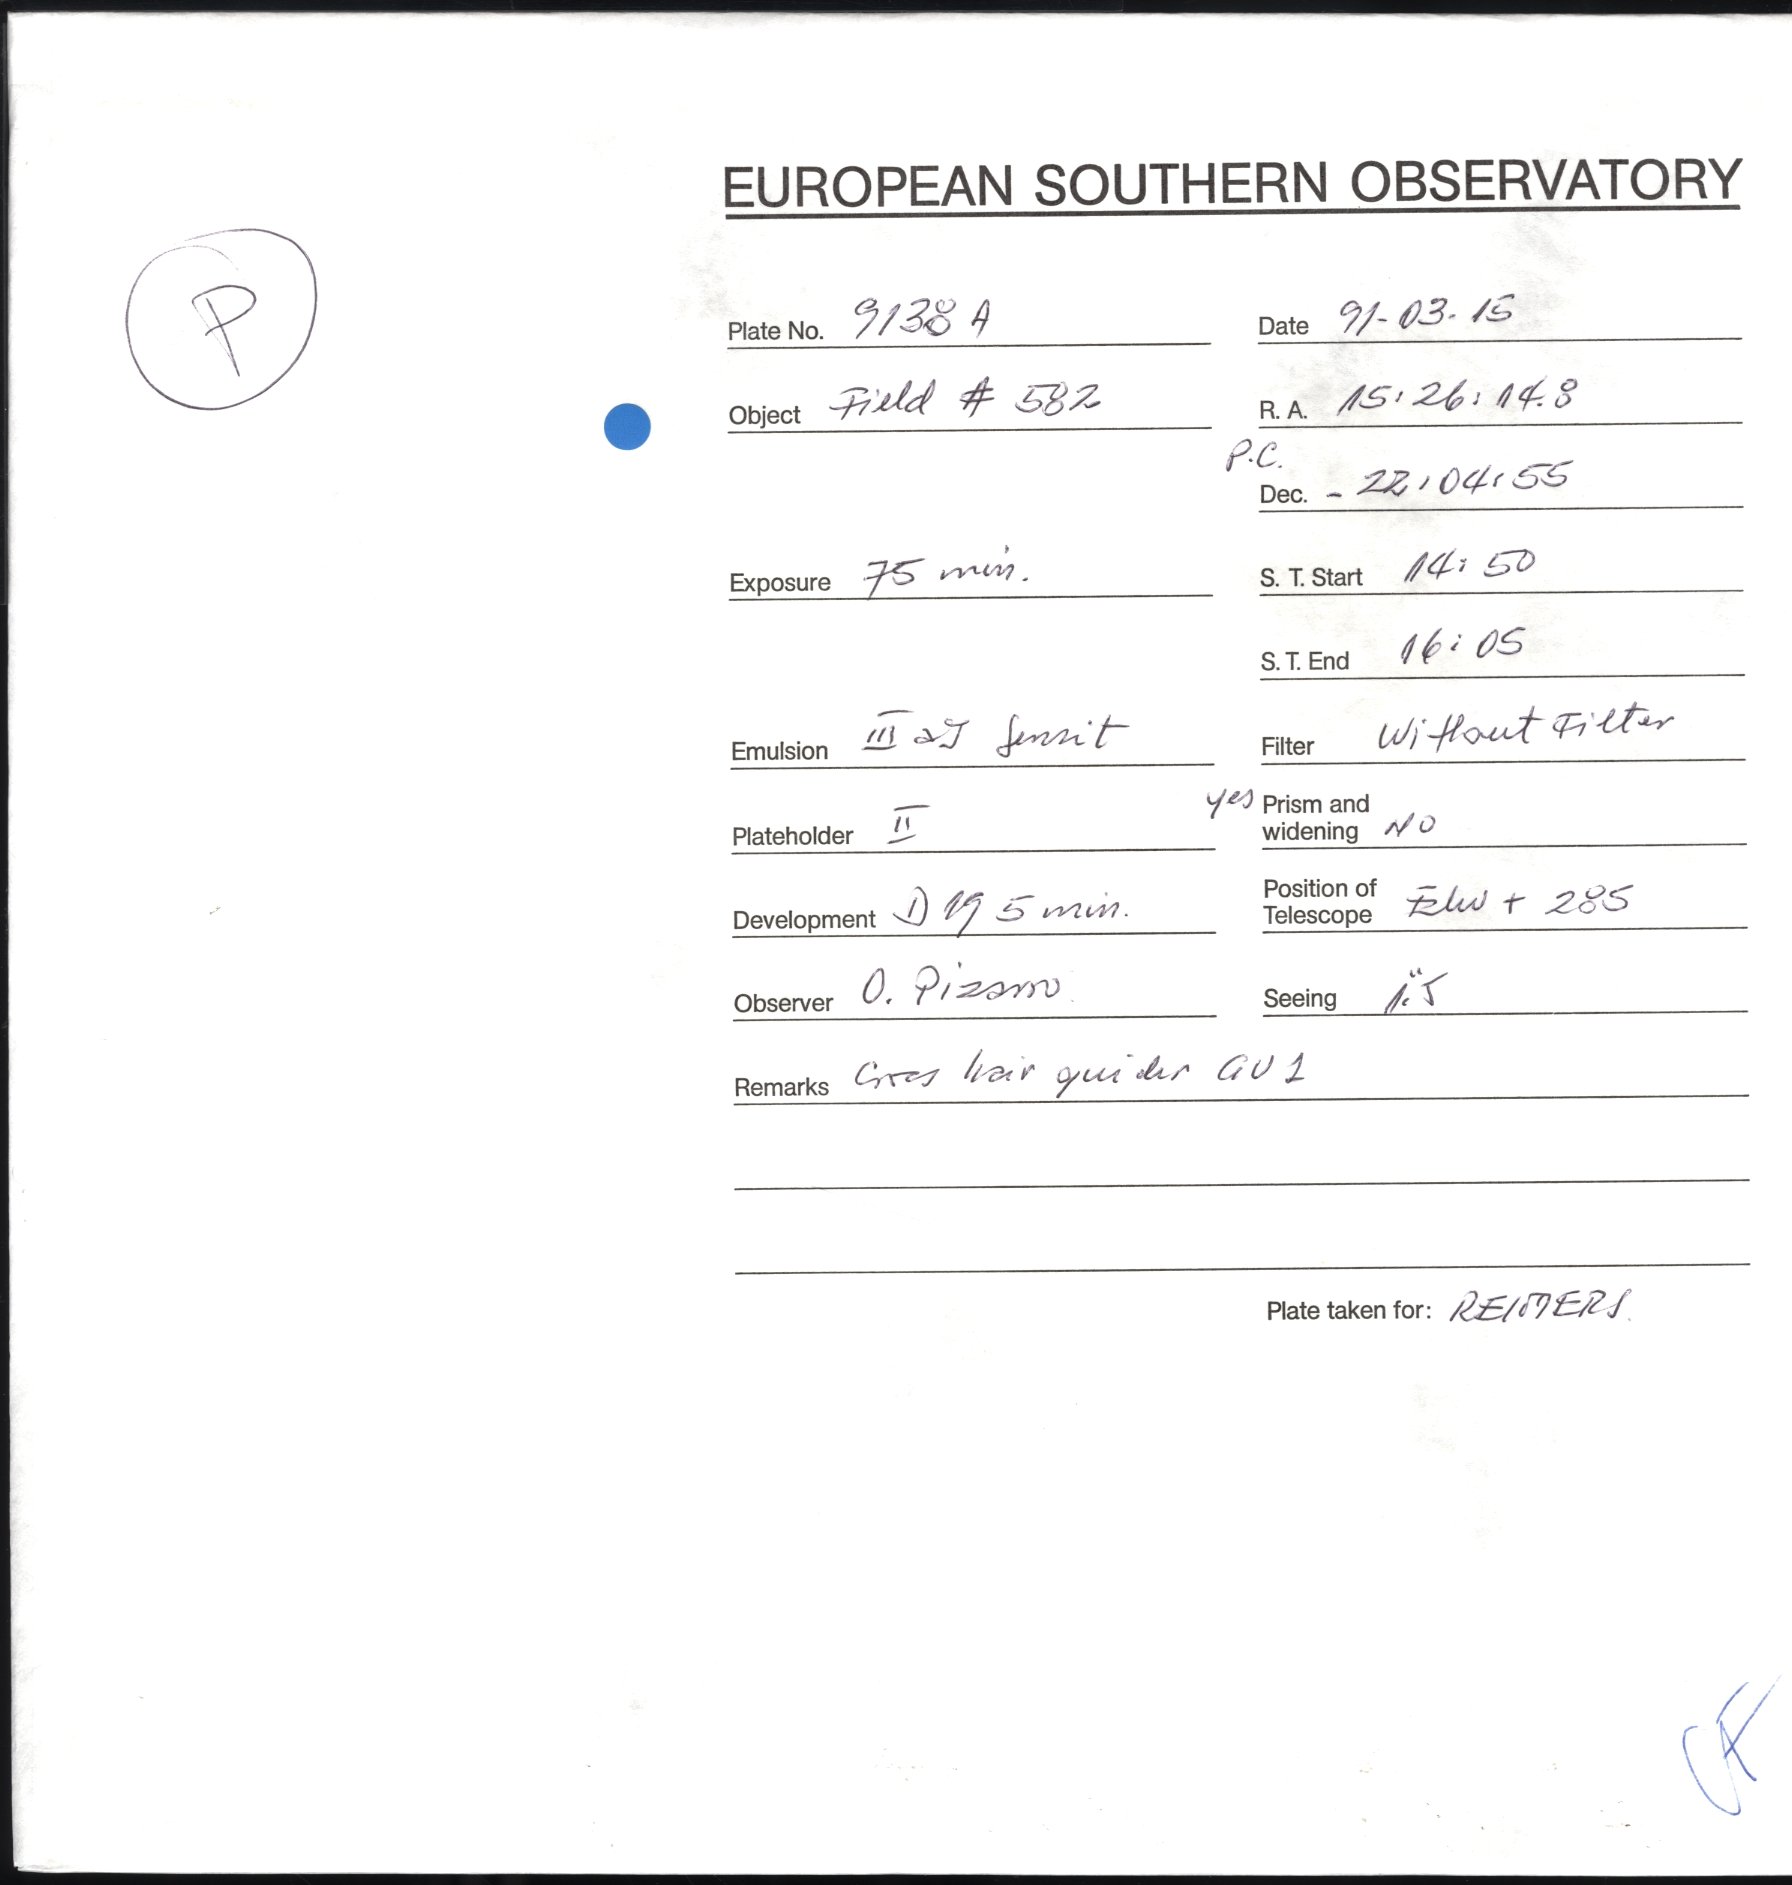 EUROPEAN SOUTHERN OBSERVATORY
P
Plate No. 9138 A
Date 91-03-15
Object Field # 582
R. A. 15:26:14.8
P.C.
Dec. - 22:04:55
Exposure 75 min.
S. T. Start 14:50
S. T. End 16:05
Emulsion III aJ Sensit
Filter Without Filter
Plateholder II
yes Prism and
widening NO
Development D 19 5 min.
Position of
Telescope + 285
Observer O. Pizarro
Seeing 1".5
Remarks Cross hair guider GU 1
Plate taken for: REIMERS.